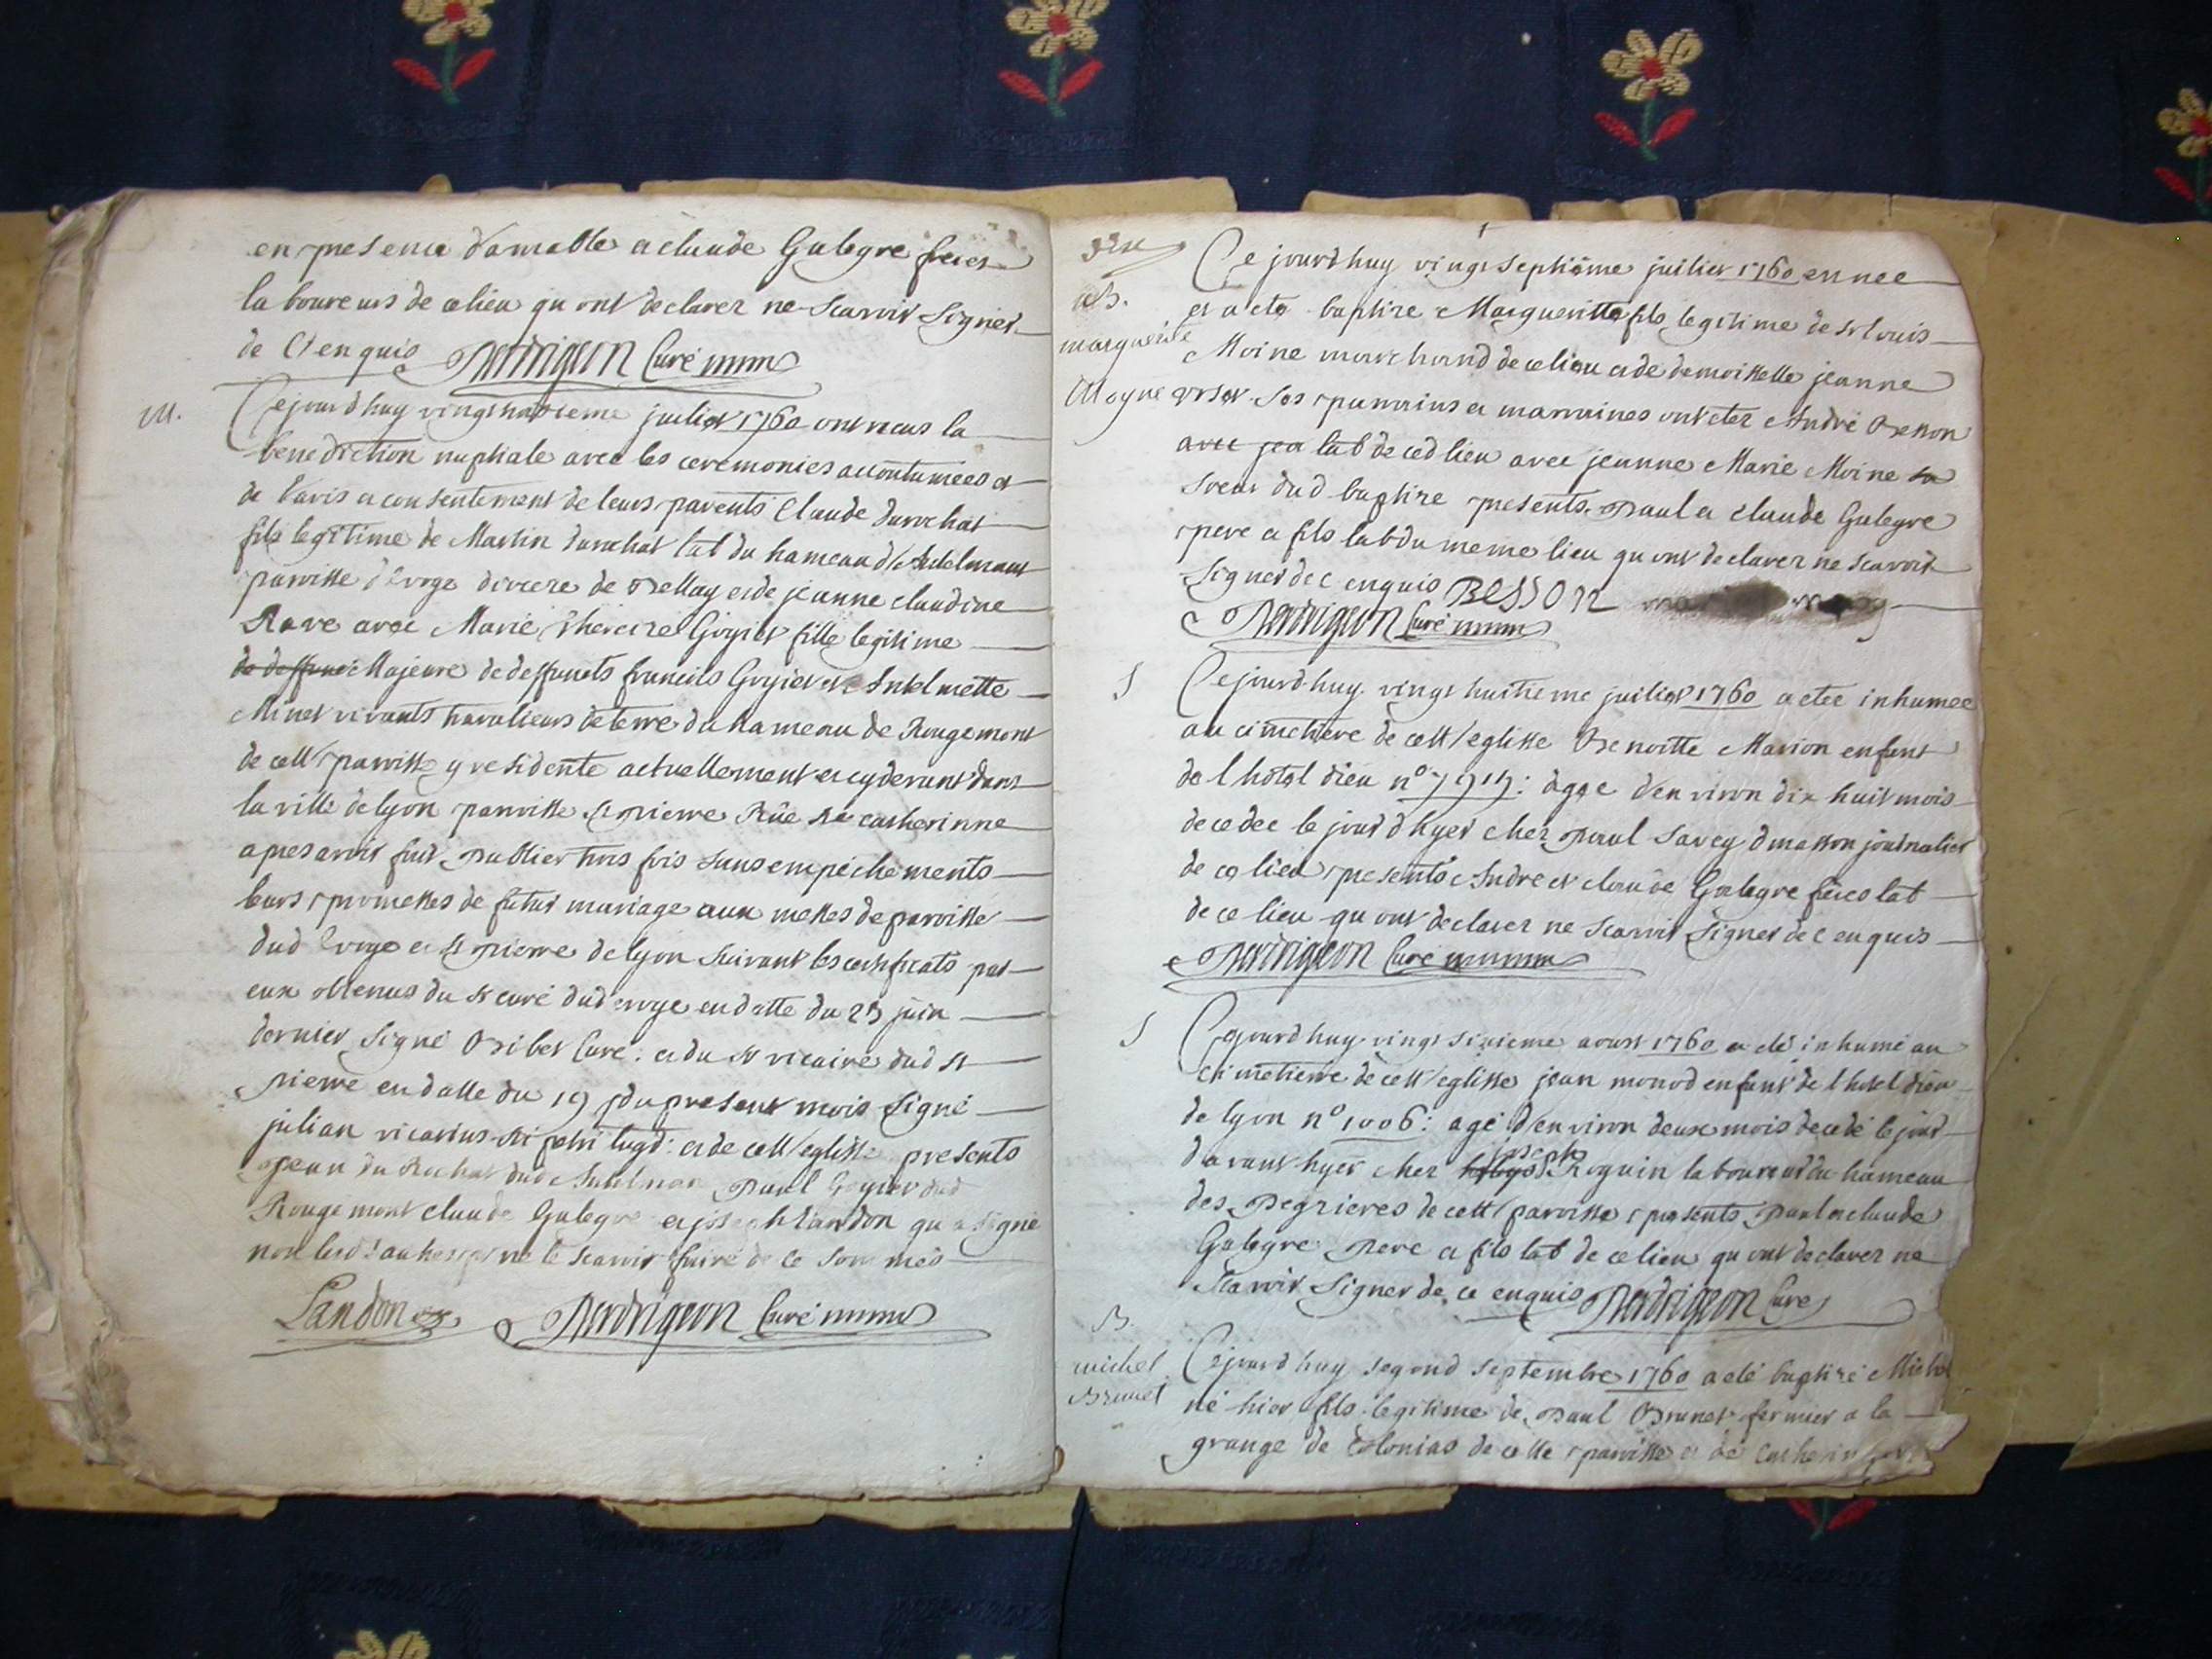 en presence damable et claude Galegre freres
laboureurs de ce lieu qu ont declarer ne scavoir signer
de ce enquis Perdrigeon Curé
M.
Cejourdhuy vingt juilliet 1760 ont recus la
benediction nuptiale avec les ceremonies accoutumees et
de lavis et consentement de leurs parents Claude durochat
fils legitime de Martin durochat lab du hameau
paroisse d'Evoge diocese de Bellay et de jeanne claudine
Rave avec Marie Thereize Goyiet fille legitime
de deffunct Majeure de deffuncts francois Goyiet et Antelmette
Minet vivants travalieurs de terre du hameau de Rougemont
de cett paroisse y residente actuellement et cy devant dans
la ville de lyon paroisse St pierre Rüe Ste catherinne
apres avoir fait publier trois fois sans empechements
leurs promesses de futur mariage aux messes de paroisse
dud Evoge et St pierre de lyon suivant les certificats par
eux obtenus du Sr curé dud evoge en datte du 23 juin
dernier signé Ribet Curé: et du Sr vicaire dud St
pierre en datte du 19 du present mois signé
julian vicarius Sti petri lugd: et de cett eglisse presents
jean du Rochat dud paul Goyiet dud
Rougemont claude Galegre et joseph Landon qu a signé
non lesd ne le scavoir faire de ce sommés
Landon Perdrigeon Curé
B.
marguerite
Moyne
Ce jourdhuy vingt septiéme juiliet 1760 en nee
et a ete baptize Margueritte fils legitime de Sr louis
Moine marchand de ce lieu et de demoiselle jeanne
Ses parrains et marraines ont etez André Besson
avec jea lab de ced lieu avec jeanne Marie Moine sa
soeur dud baptize presents paul et claude Galegre
pere et fils lab du meme lieu qu ont declarer ne scavoir
signer de c enquis BESSON
Perdrigeon Curé
S
Cejourdhuy vingt huitieme juiliet 1760 a etée inhumee
au cimetiere de cett eglisse Benoitte Marion enfant
de l hotel dieu n° agee d'environ dix huit mois
decedee le jour d hyer chez paul Savey journalier
de ce lieu presents Andre et claude Galegre freres lab
de ce lieu qu ont declarer ne scavoir signer de c enquis
Perdrigeon Curé
S
Cejourdhuy vingt sixieme aoust 1760 a eté inhumé au
cimetierre de cett eglisse jean monod enfant de l hotel dieu
de lyon n° 1006: agé d'environ deux mois decedé le jour
davant hyer chez joseph Roguin laboureur du hameau
des pegrieres de cett paroisse presents paul et claude
Galegre pere et fils lab de ce lieu qu ont declarer ne
scavoir signer de ce enquis Perdrigeon Curé
B.
michel
Brunet
Cejourdhuy segond septembre 1760 a eté baptizé Michel
né hier fils legitime de paul Brunet fermier a la
grange de Colonias de cette paroisse et de